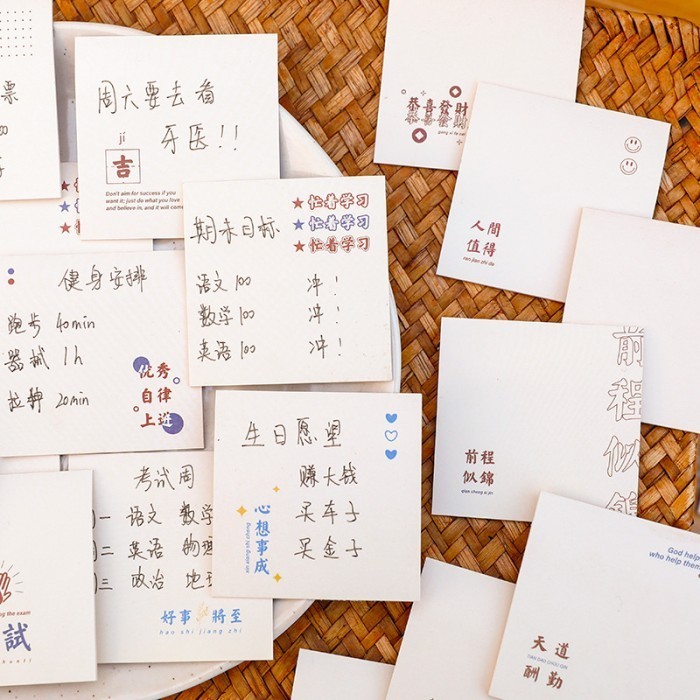 票
周六要去看
牙医!!
jí
吉
Don't aim for success if you
want it; just do what you love
and believe in, and it will come
期末目标
忙着学习
忙着学习
忙着学习
语文 100 冲!
数学 100 冲!
英语 100 冲!
健身安排
跑步 40min
器械 1h
拉伸 20min
优秀
自律
上进
生日愿望
赚大钱
买车子
买金子
心想事成
xin xiang shi cheng
考试周
一 语文 数学
二 英语 物理
三 政治 地理
好事將至
hao shi jiang zhi
ng the exam
試
恭喜發財
恭喜發財
gong xi fa cai
人間
值得
ren jian zhi de
前程
似錦
qian cheng si jin
前程似錦
God help
who help them
天道
酬勤
TIAN DAO CHOU QIN